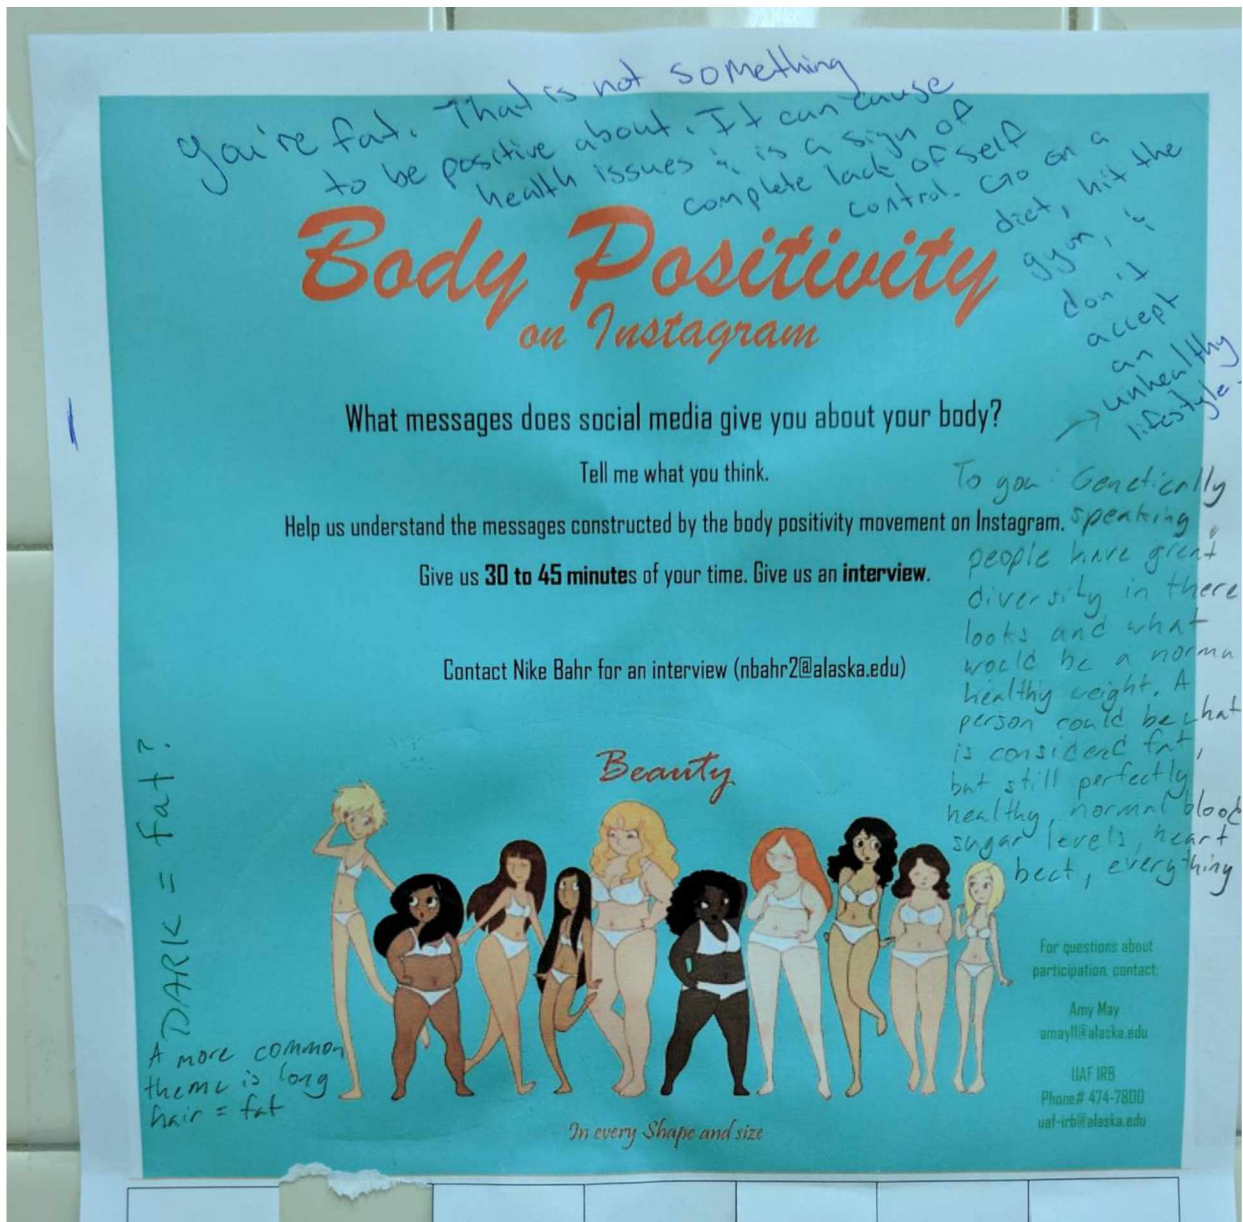 You're fat. That is not something
to be positive about. It can cause
health issues & is a sign of
complete lack of self
control. Go on a
diet, hit the
gym, &
don't
accept
an
unhealthy
lifestyle.
Body Positivity
on Instagram
What messages does social media give you about your body?
Tell me what you think.
Help us understand the messages constructed by the body positivity movement on Instagram.
Give us 30 to 45 minutes of your time. Give us an interview.
Contact Nike Bahr for an interview (nbahr2@alaska.edu)
To you: Genetically
speaking
people have great
diversity in there
looks and what
would be a norma
healthy weight. A
person could be what
is considerd fat,
but still perfectly
healthy, normal blood
sugar levels, heart
beat, everything
Beauty
DARK = fat?
A more common
theme is long
hair = fat
For questions about
participation, contact:
Amy May
amay11@alaska.edu
UAF IRB
Phone# 474-7800
uaf-irb@alaska.edu
In every Shape and size